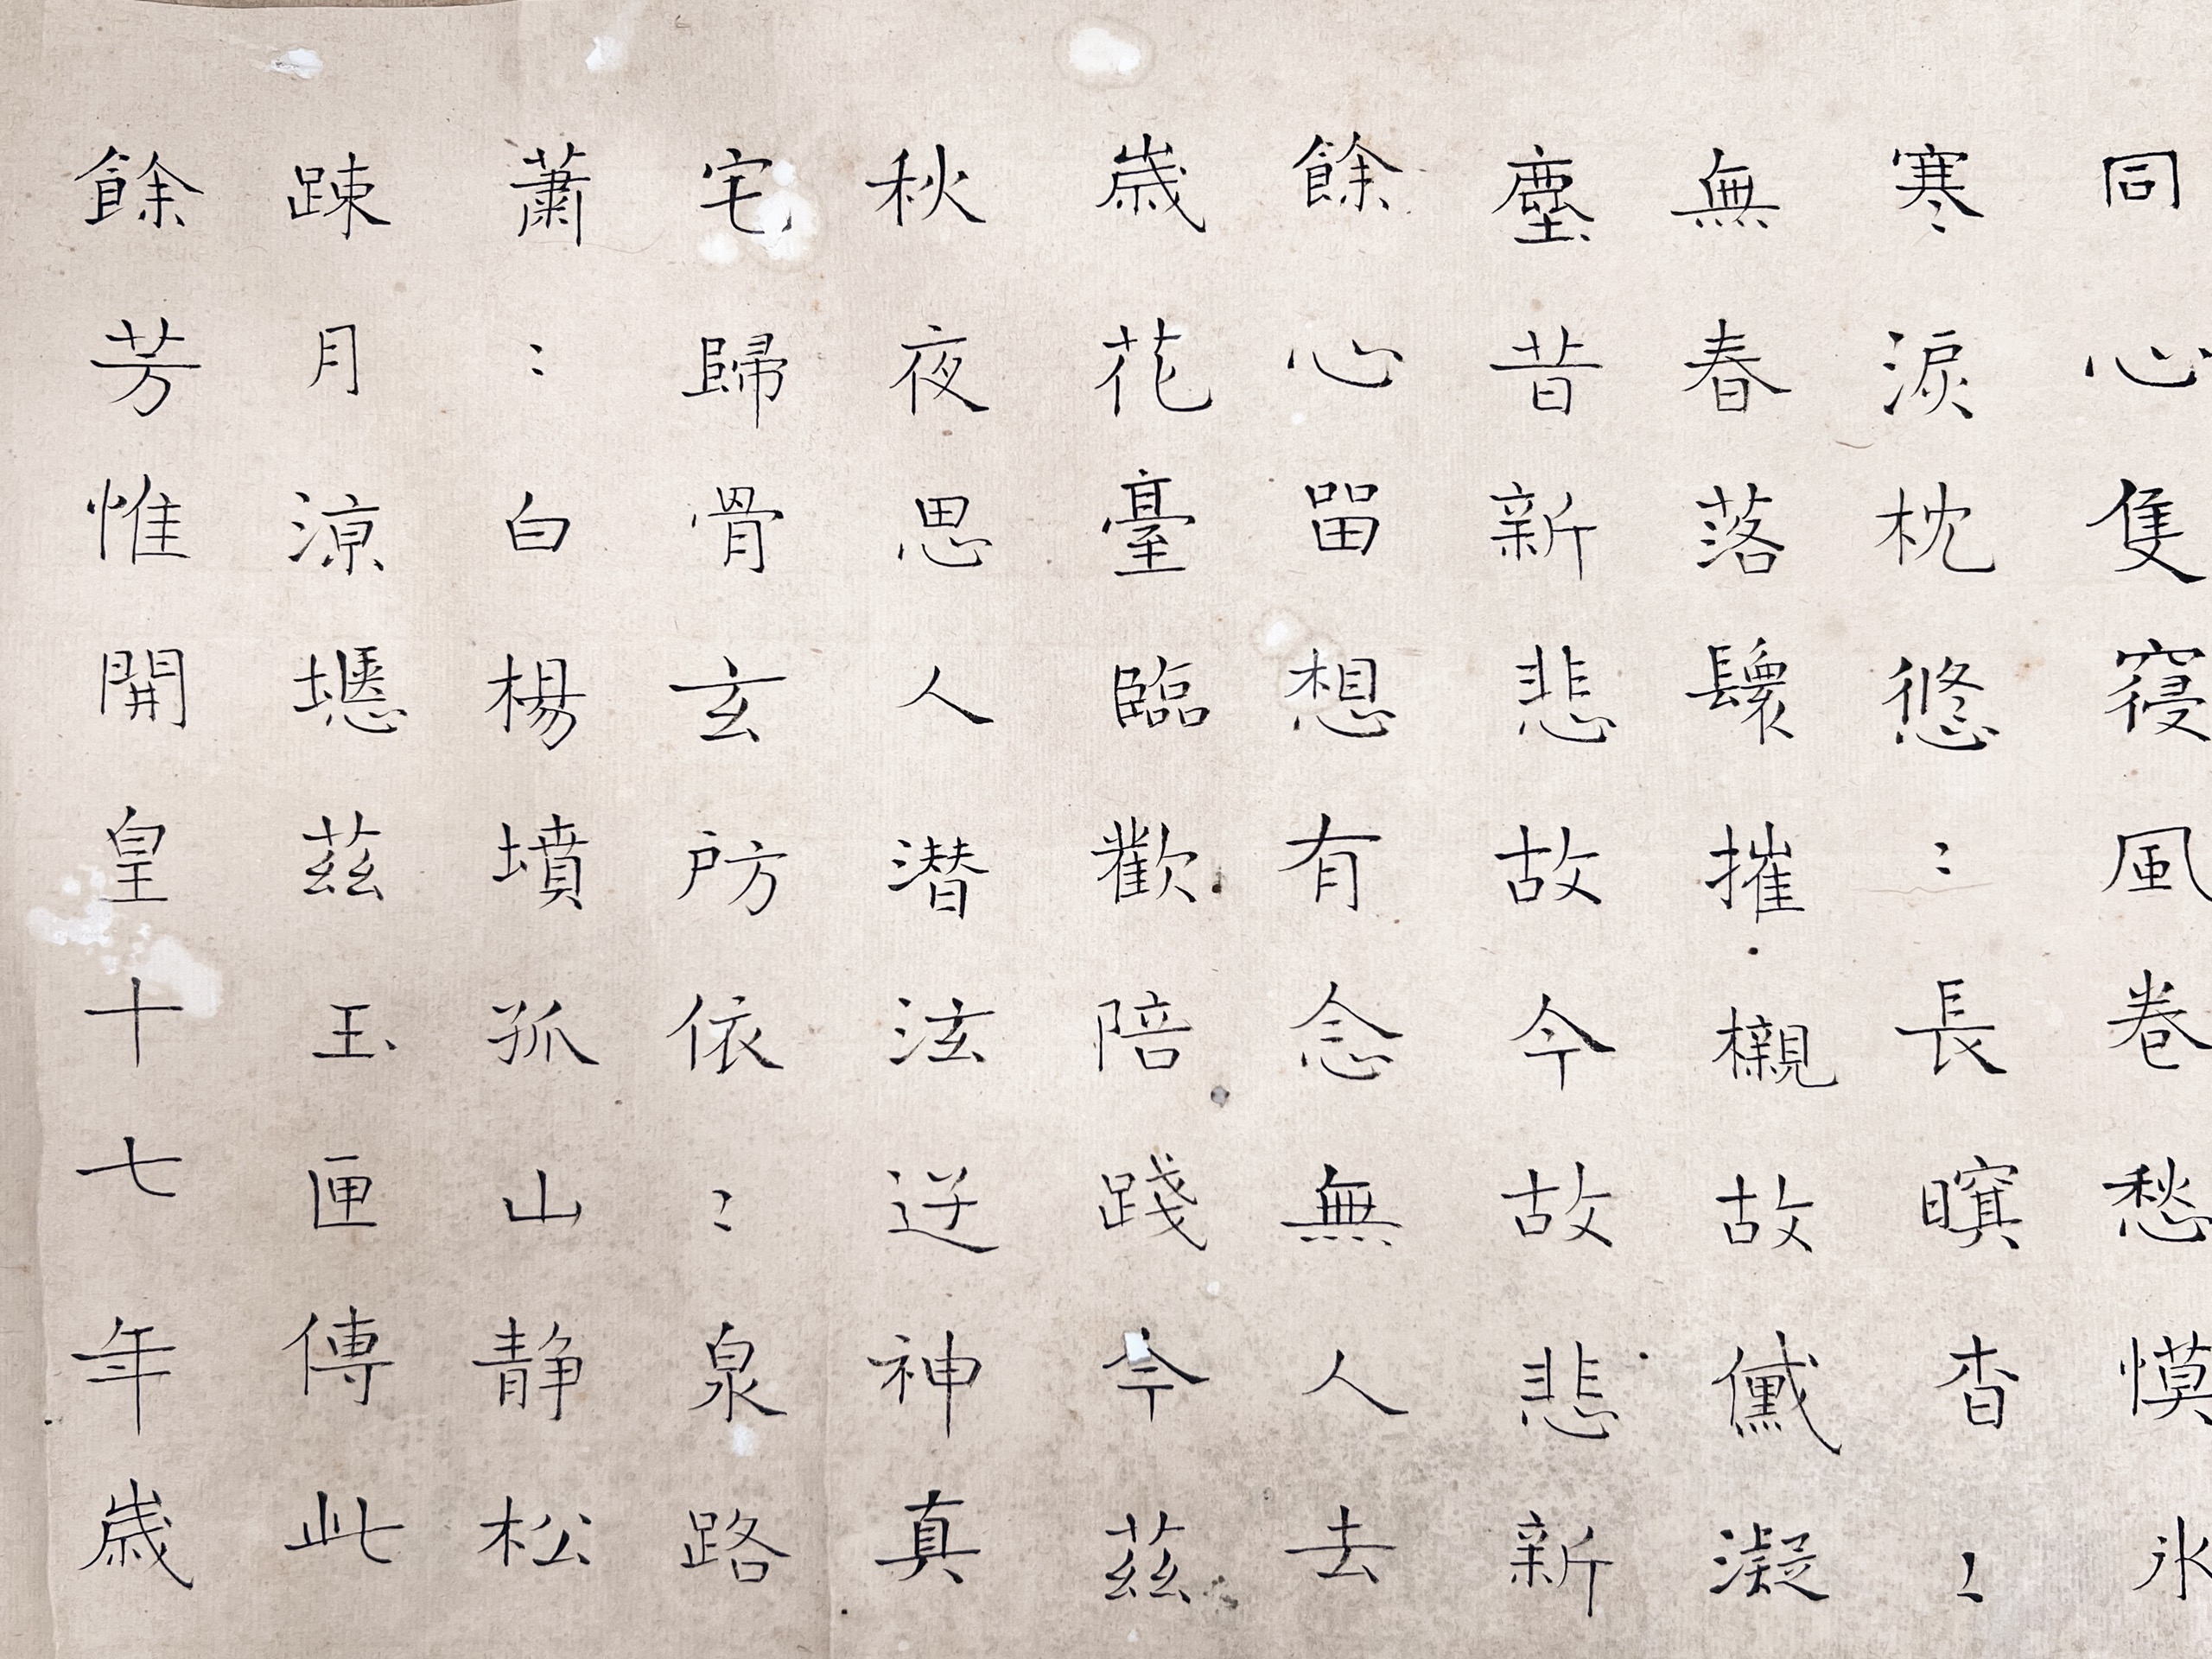 同心隻寝風卷愁慔氷
寒淚枕悠：長瞑杳：
無春落鬟摧櫬故黛凝
塵昔新悲故今故悲新
餘心留想有念無人去
歲花臺臨歡陪踐今茲
秋夜思人潛泫逆神真
宅歸骨玄房依：泉路
蕭：白楊墳孤山静松
踈月涼壥茲玉匣傳此
餘芳惟開皇十七年歲